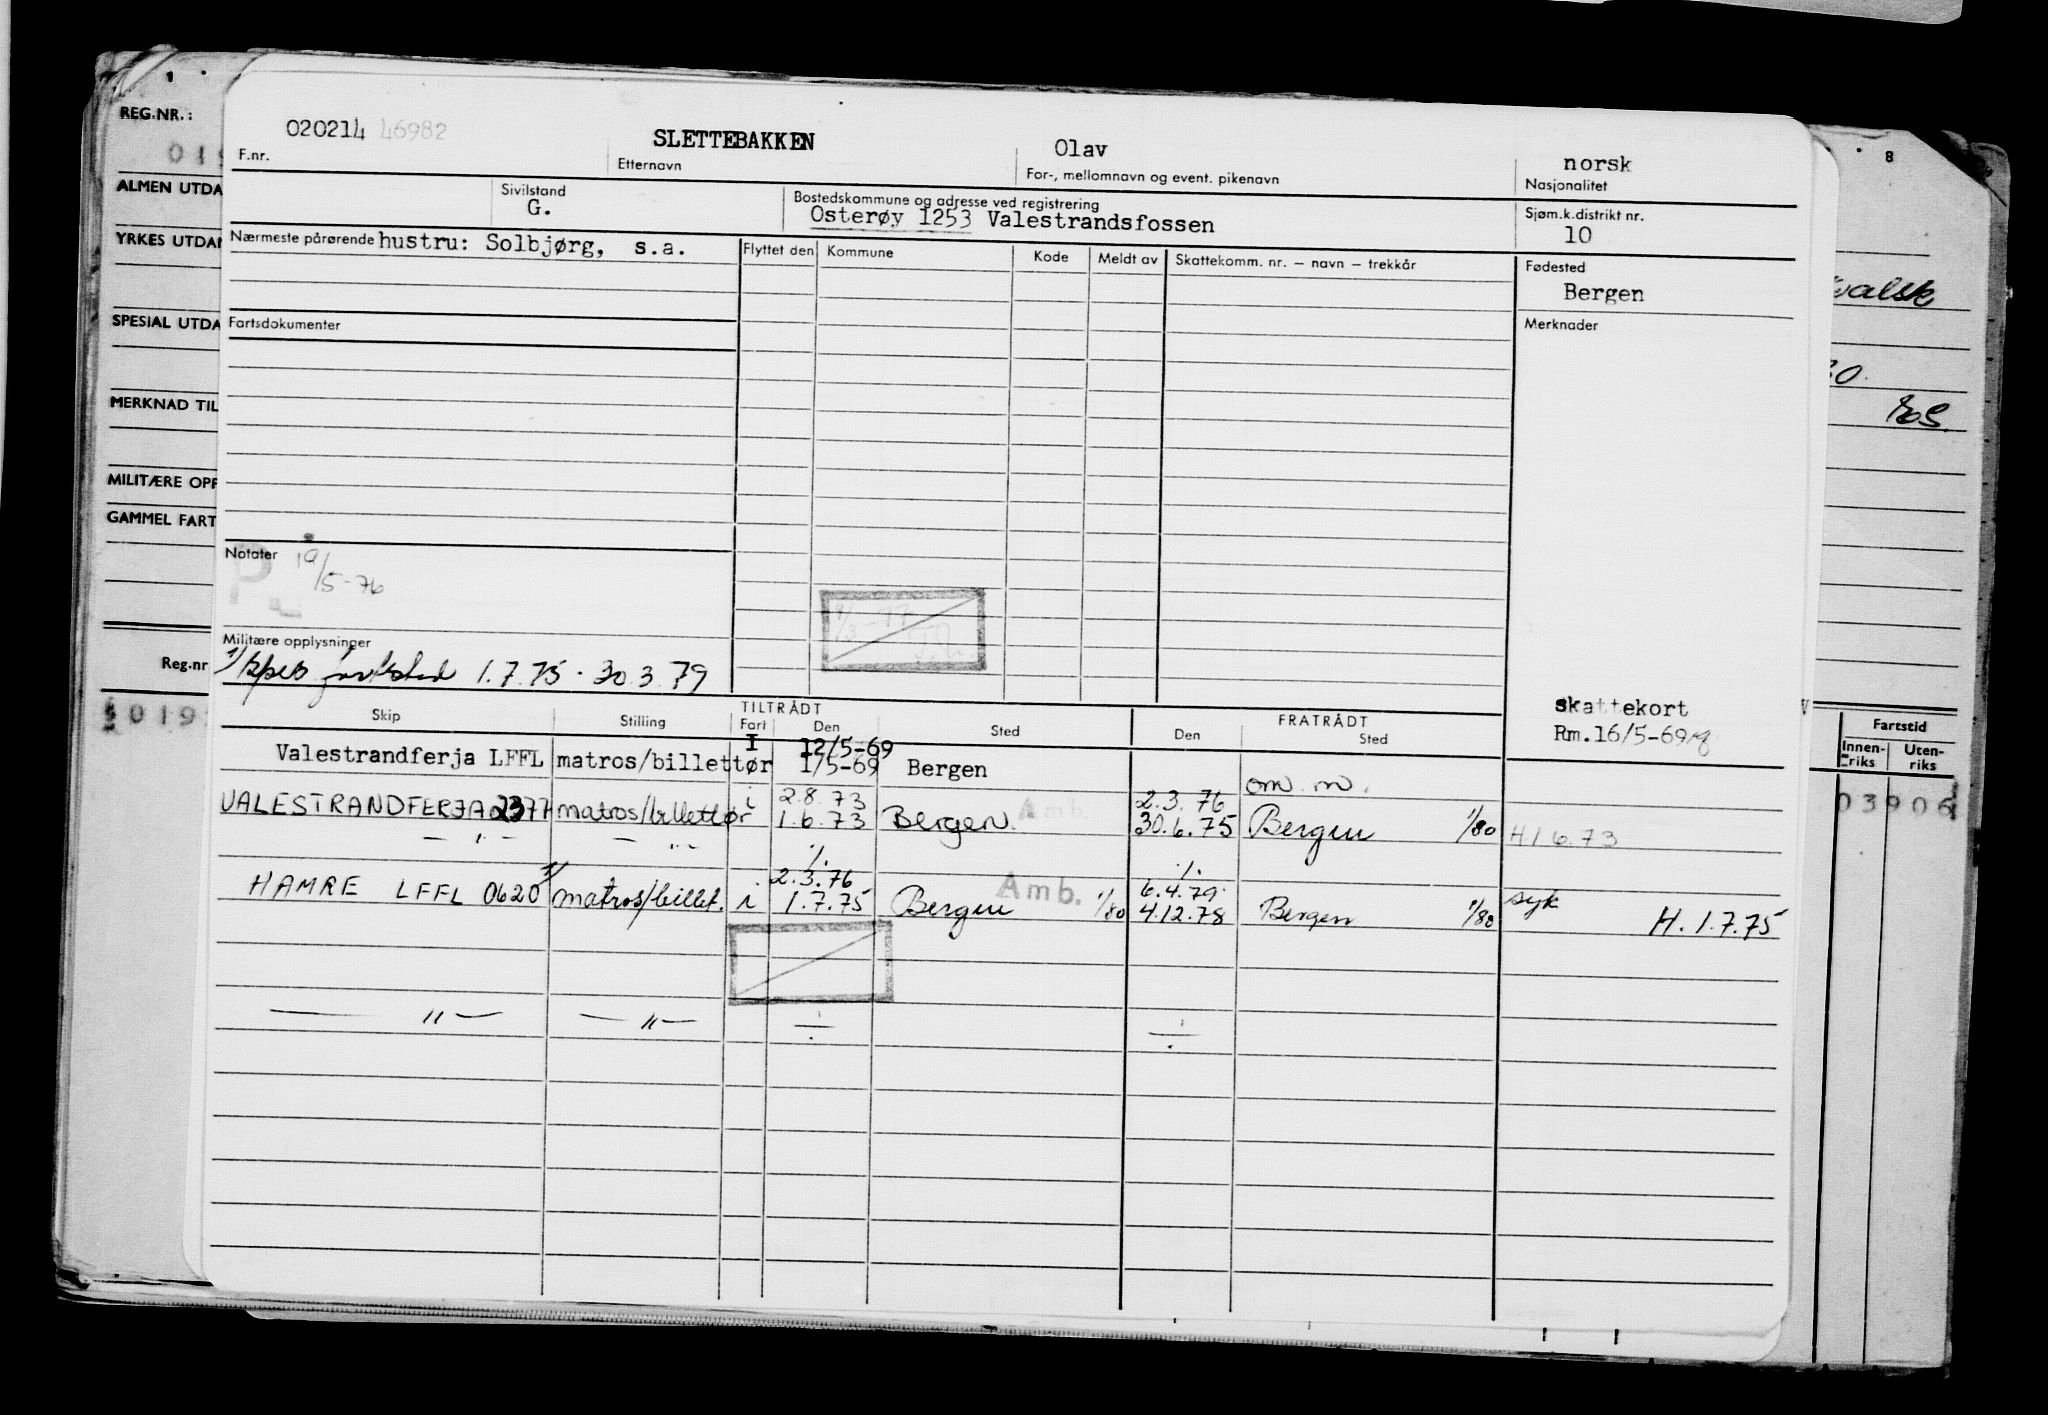 REG.NR.:
019
ALMEN UTDA
YRKES UTDAN
SPESIAL UTDA
MERKNAD TIL
MILITÆRE OPP
GAMMEL FART
Reg.nr
019
020214 46982
F.nr.
SLETTEBAKKEN
Etternavn
Olav
For-, mellomnavn og event. pikenavn
norsk
Nasjonalitet
Sivilstand
G.
Bostedskommune og adresse ved registrering
Osterøy 1253 Valestrandsfossen
Sjøm.k.distrikt nr.
10
Nærmeste pårørende hustru: Solbjørg, s.a.
Flyttet den Kommune Kode Meldt av Skattekomm. nr. – navn – trekkår
Fødested
Bergen
Fartsdokumenter
Merknader
Notater
P 19/5-76
1/3-77
Militære opplysninger
1/ 1.7.75 - 30.3.79
skattekort
Rm.16/5-69
Skip Stilling TILTRÅDT Fart Den Sted FRATRÅDT Den Sted
I 12/5-69
Valestrandferja LFFL matros/billettør 1/5-69 Bergen
i 2.8.73 2.3.76 om m.
VALESTRANDFERJA 2377 matros/billettør 1.6.73 Bergen Amb. 30.6.75 Bergen 1/80 H 1.6.73
— " — — " — ./. ./.
2.3.76 6.4.79
HAMRE LFFL 0620 1/ matros/billet. i 1.7.75 Bergen Amb. 1/80 4.12.78 Bergen 1/80 syk H. 1.7.75
— " — — " — ÷ ÷
8
valsk
30.
Fartstid
Innen-riks Uten-riks
03906